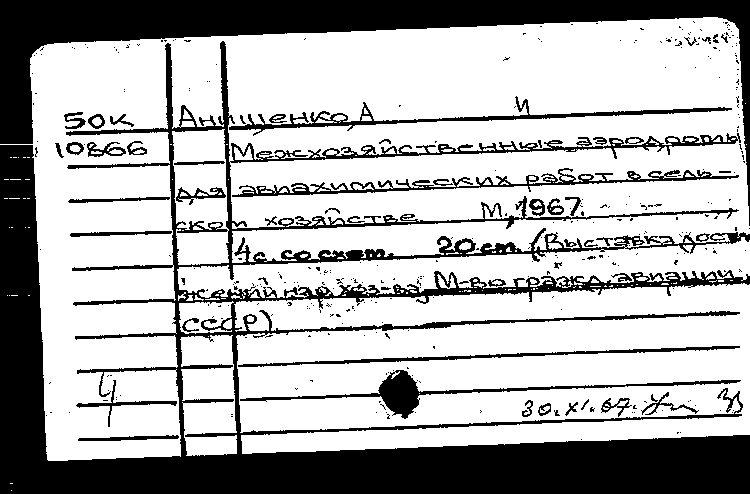 50к Анищенко, А И
10866 Межхозяйственные аэродромы
для авиахимических работ в сель-
ском хозяйстве. М., 1967.
4 с. со схем. 20 см. (Выставка дости
жений нар. хоз-ва, М-во гражд. авиации
СССР)
4
30.XI.67.